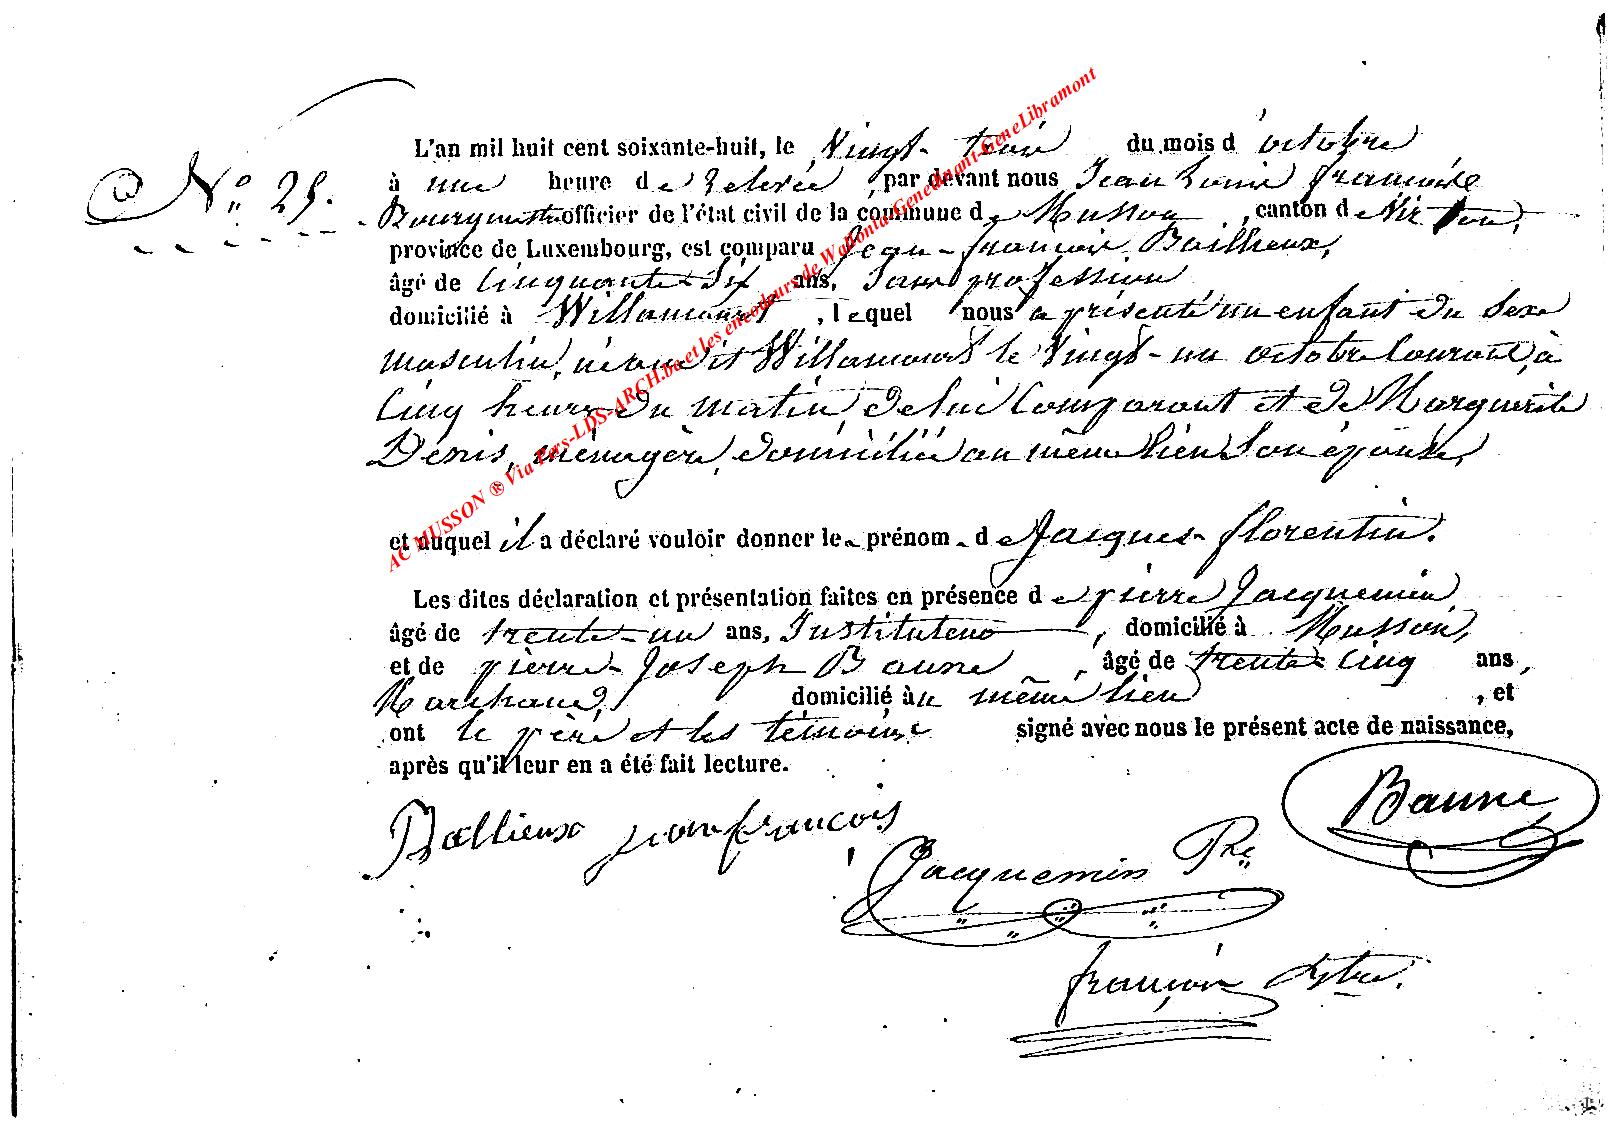 L'an mil huit cent soixante-huit, le Vingt-trois du mois d'octobre
N° 25.
à une heure de relevée, par devant nous Jean Louis François
Bourgmestre officier de l'état civil de la commune de Musson, canton de Virton,
province de Luxembourg, est comparu Jean-françois Bailleux,
âgé de Cinquante Six ans, Sans profession
domicilié à Willancourt, lequel nous a présenté un enfant du Sexe
masculin, né audit Willancourt le Vingt-un octobre Courant, à
Cinq heures du matin, de lui Comparant et de Marguerite
Denis, ménagère, domiciliée au même lieu Son épouse,
et auquel il a déclaré vouloir donner les prénoms de Jacques-florentin.
Les dites déclaration et présentation faites en présence de pierre Jacquemin,
âgé de trente-un ans, Instituteur, domicilié à Musson,
et de pierre-Joseph Baune, âgé de trente Cinq ans,
Marchand, domicilié au même lieu, et
ont le père et les témoins signé avec nous le présent acte de naissance,
après qu'il leur en a été fait lecture.
Baune
Ballieux jeanfrancois
Jacquemin Pre
françois
AC MUSSON ® Via Pers-LDS-ARCH.be et les encodeurs de Wallonia-GeneDinant-GeneLibramont